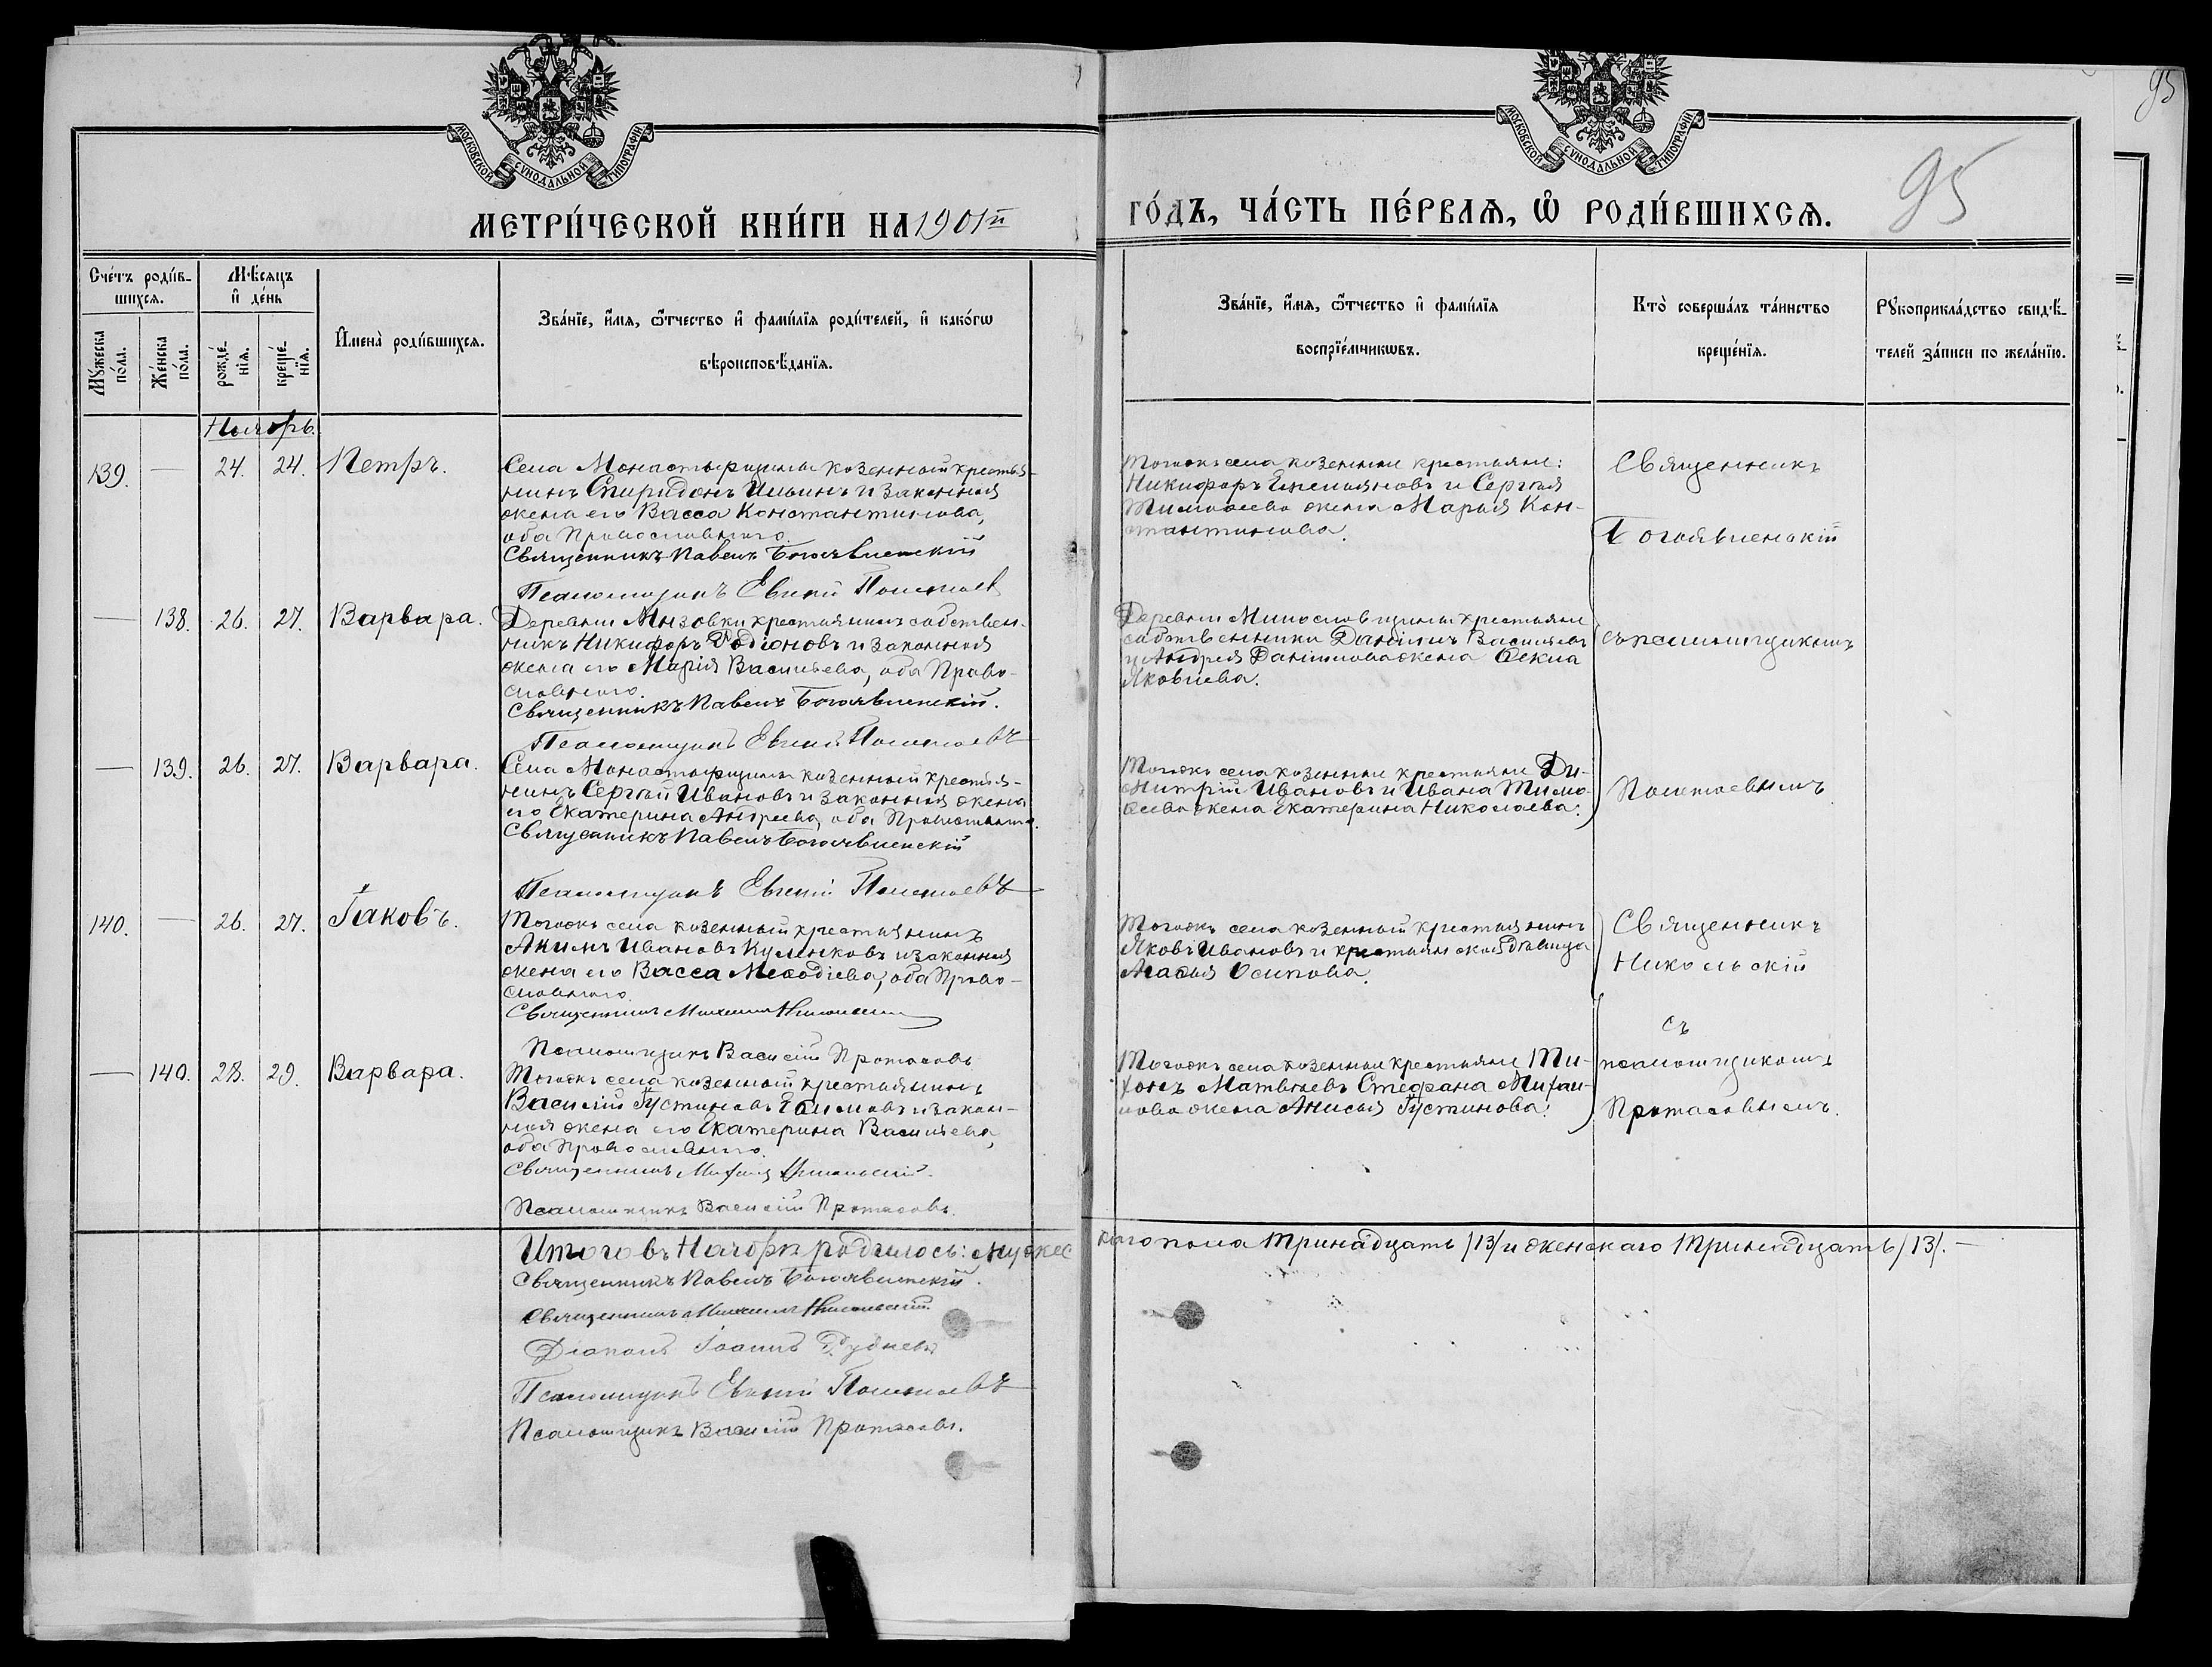 95
МОСКОВСКОЙ СѴНОДАЛЬНОЙ ТИПОГРАФІИ
МОСКОВСКОЙ СѴНОДАЛЬНОЙ ТИПОГРАФІИ
МЕТРИ́ЧЕСКОЙ КНИ́ГИ НА 1901й ГО́ДЪ, ЧА́СТЬ ПЕ́РВАѦ, Ѽ РОДИ́ВШИХСѦ.
95
Сче́тъ роди́в-
шихсѧ.
Мѣ́сѧцъ
и҆ де́нь
Мꙋ́жеска по́ла.
Же́нска по́ла.
рожде́-нїѧ.
креще́-нїѧ.
И҆мена̀ роди́вшихсѧ.
Зва́нїе, и҆́мѧ, ѻ҆́тчество и҆ фамі́лїѧ роди́телей, и҆ како́гѡ
вѣроисповѣ́данїѧ.
Зва́нїе, и҆́мѧ, ѻ҆́тчество и҆ фамі́лїѧ
воспрїе́мникѡвъ.
Кто̀ соверша́лъ та́инство
креще́нїѧ.
Рꙋкоприкла́дство свидѣ́-
телей за́писи по жела́нїю.
Ноябрь.
139. — 24. 24. Петръ.
Села Монастырщины казенный крестья-
нинъ Спиридонъ Ильинъ и законная
жена его Васса Константинова,
оба Православнаго.
Священникъ Павелъ Богоявленскій
Псаломщикъ Евгеній
Тогоже села казенные крестьяне:
Никифоръ Емельяновъ и Сергѣя
Тимофеева жена Марья Кон-
стантинова.
Священникъ
Богоявленскій
— 138. 26. 27. Варвара.
Деревни Мызовки крестьянинъ собствен-
никъ Никифоръ Родіоновъ и законная
жена его Марія Васильева, оба Право-
славнаго.
Священникъ Павелъ Богоявленскій.
Псаломщикъ Евгеній
Деревни Милославщины крестьяне
собственники Даніилъ Васильевъ
и Андрея Даніилова жена Фекла
Яковлева.
съ псаломщикомъ
— 139. 26. 27. Варвара.
Села Монастырщины казенный крестья-
нинъ Сергѣй Ивановъ и законная жена
его Екатерина Андреева, оба Православнаго.
Священникъ Павелъ Богоявленскій
Псаломщикъ Евгеній
Тогоже села казенные крестьяне Ди-
митрій Ивановъ и Ивана Тимо-
феева жена Екатерина Николаева.
140. — 26. 27. Іаковъ.
Тогоже села казенный крестьянинъ
Акимъ Ивановъ Куленковъ и законная
жена его Васса Мефодіева, оба Право-
славнаго.
Священникъ Михаилъ Никольскій
Псаломщикъ Василій Протасовъ
Тогоже села казенный крестьянинъ
Яковъ Ивановъ и крестьянская дѣвица
Агафья Осипова.
Священникъ
Никольскій
съ
— 140. 28. 29. Варвара.
Тогоже села казенный крестьянинъ
Василій Іустиновъ Ефимовъ и закон-
ная жена его Екатерина Васильева,
оба Православнаго.
Священникъ Михаилъ Никольскій.
Псаломщикъ Василій Протасовъ.
Тогоже села казенные крестьяне Ти-
хонъ Матвѣевъ Стефана Михаи-
лова жена Анисья Іустинова.
псаломщикомъ
Протасовымъ.
Итого въ Ноябрѣ родилось: мужескаго пола тринадцать /13/ и женскаго тринадцать /13/. —
Священникъ Павелъ Богоявленскій.
Священникъ Михаилъ Никольскій
Діаконъ Іоаннъ Рудневъ
Псаломщикъ Евгеній
Псаломщикъ Василій Протасовъ.